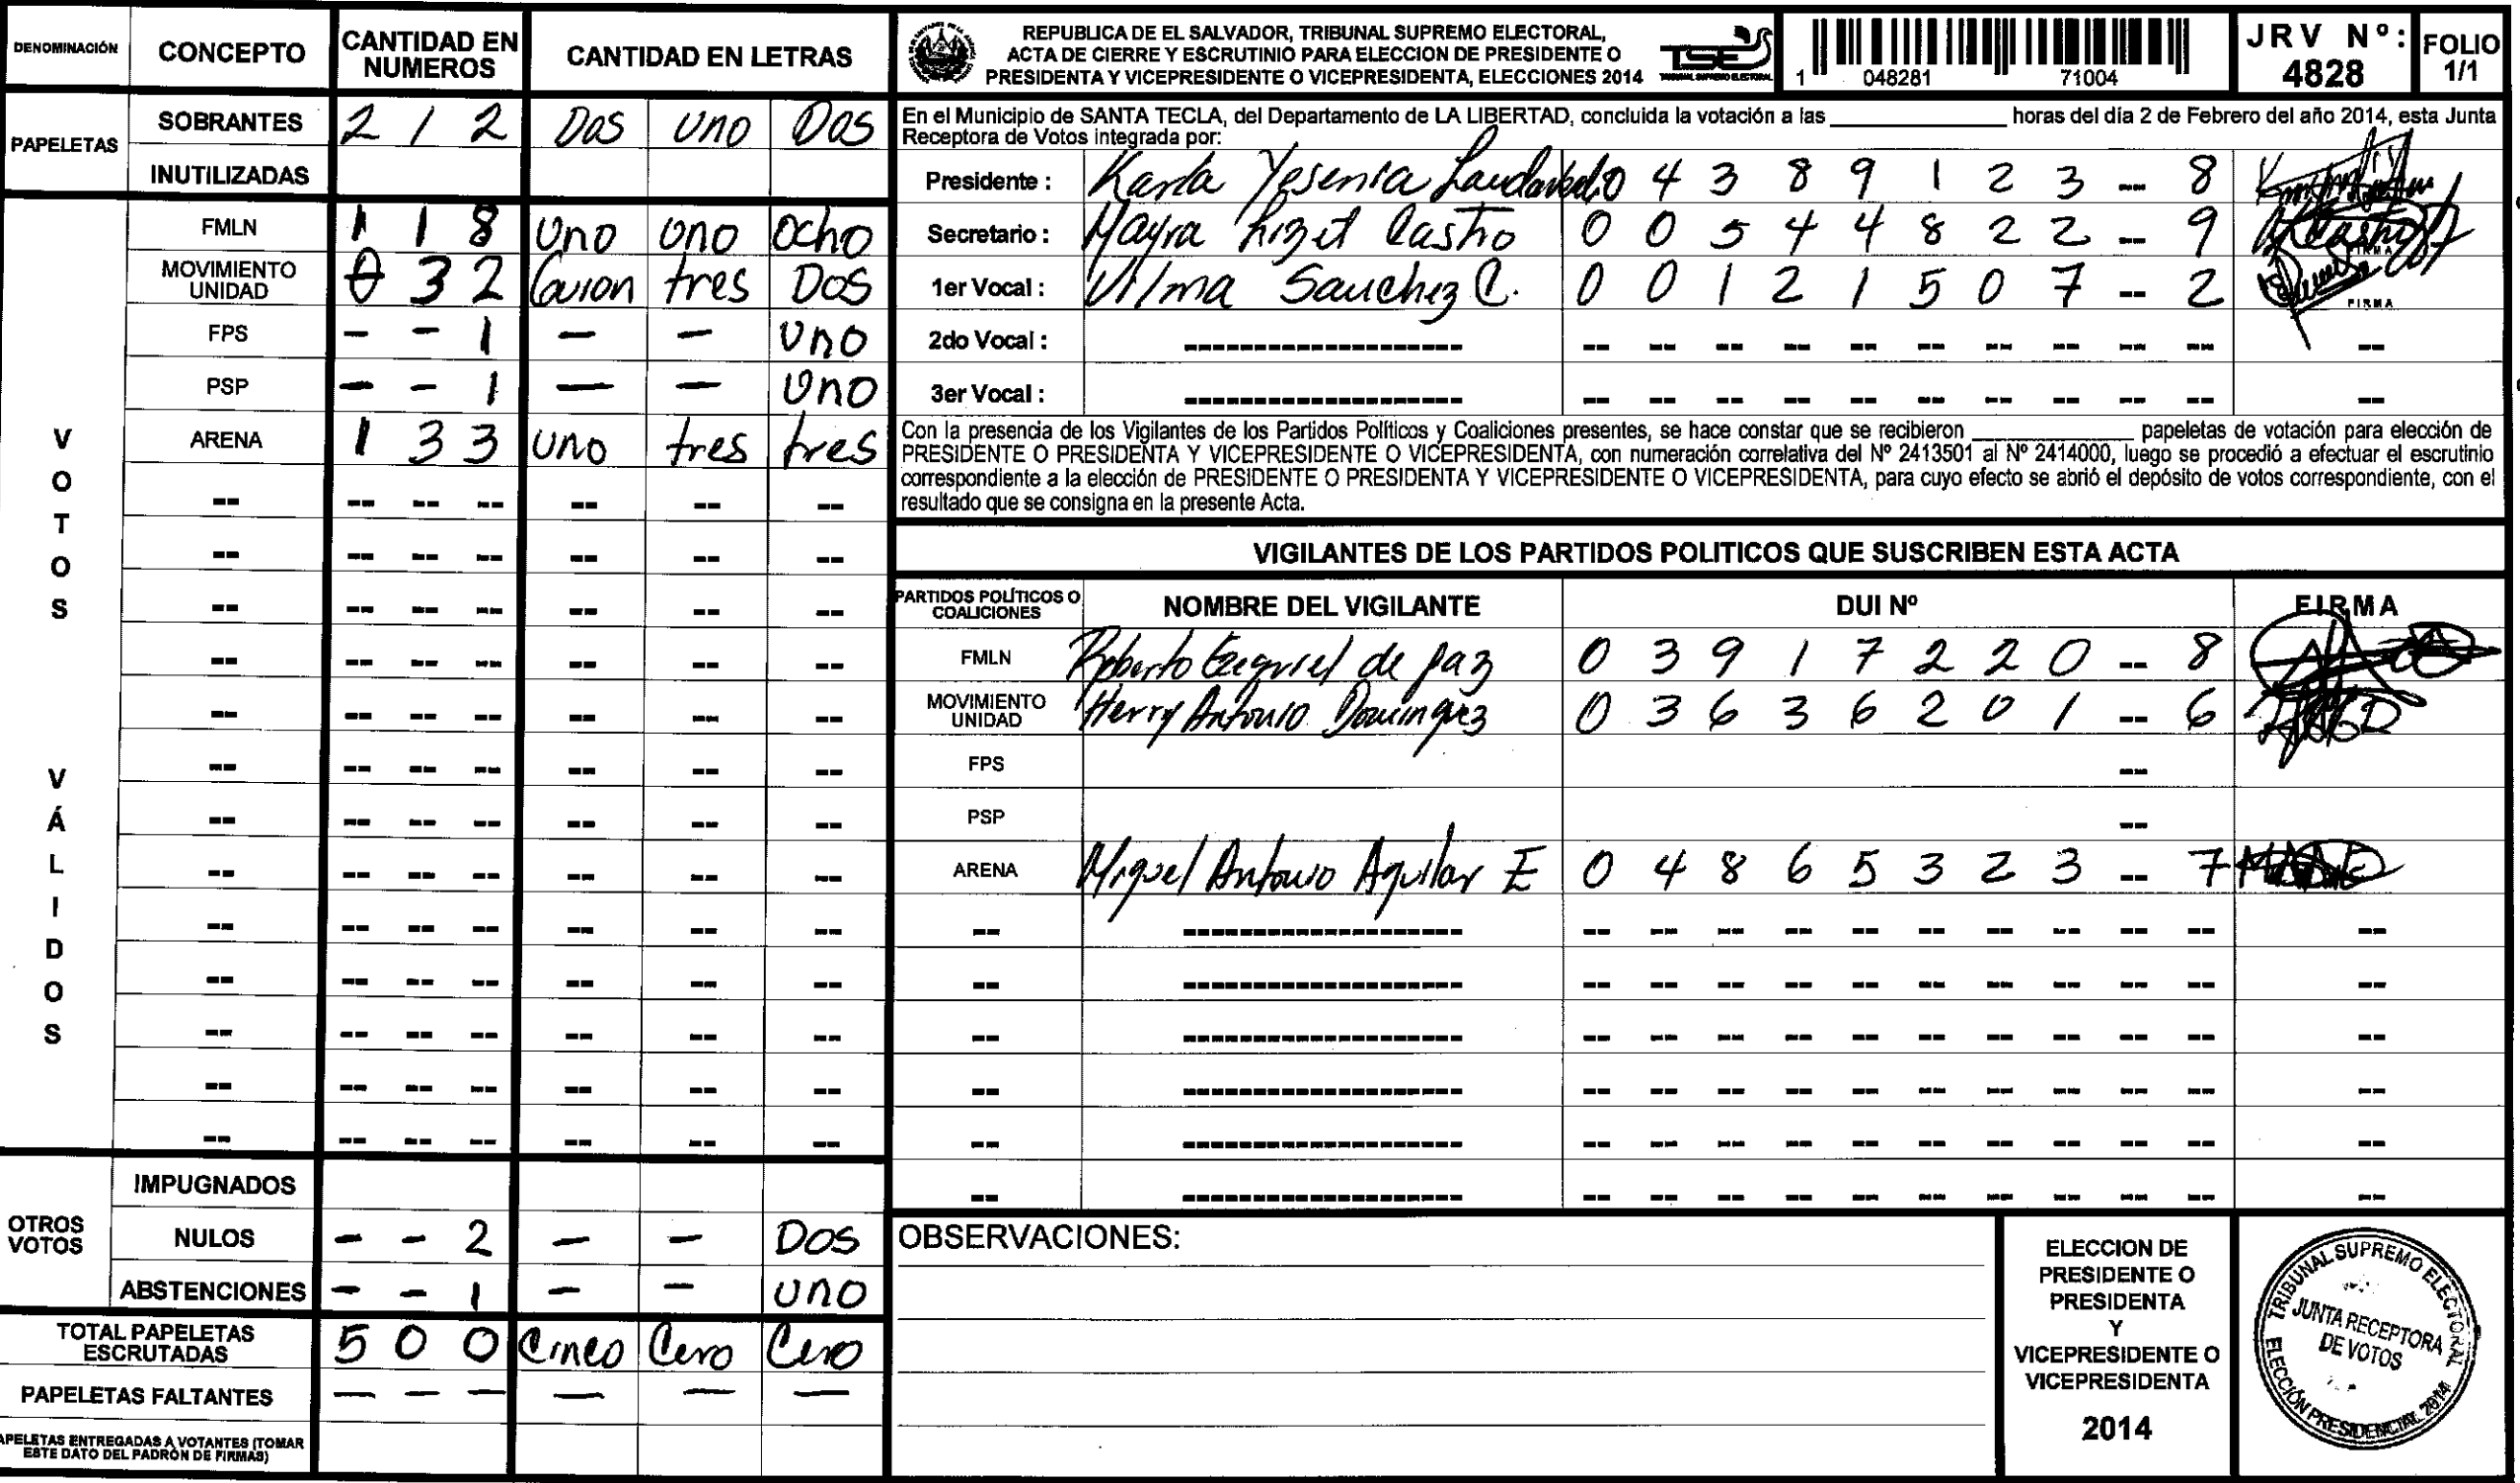 DENOMINACIÓN CONCEPTO CANTIDAD EN NUMEROS CANTIDAD EN LETRAS
PAPELETAS
SOBRANTES 2 1 2 Dos Uno Dos
INUTILIZADAS
VOTOS VÁLIDOS
FMLN 1 1 8 Uno Uno Ocho
MOVIMIENTO UNIDAD 0 3 2 Guion tres Dos
FPS - - 1 - - Uno
PSP - - 1 - - Uno
ARENA 1 3 3 Uno tres tres
-- -- -- -- -- -- --
-- -- -- -- -- -- --
-- -- -- -- -- -- --
-- -- -- -- -- -- --
-- -- -- -- -- -- --
-- -- -- -- -- -- --
-- -- -- -- -- -- --
-- -- -- -- -- -- --
-- -- -- -- -- -- --
-- -- -- -- -- -- --
-- -- -- -- -- -- --
-- -- -- -- -- -- --
-- -- -- -- -- -- --
OTROS VOTOS
IMPUGNADOS
NULOS - - 2 - - Dos
ABSTENCIONES - - 1 - - Uno
TOTAL PAPELETAS ESCRUTADAS 5 0 0 Cinco Cero Cero
PAPELETAS FALTANTES - - - - - -
APELETAS ENTREGADAS A VOTANTES (TOMAR
ESTE DATO DEL PADRÓN DE FIRMAS)
REPUBLICA DE EL SALVADOR, TRIBUNAL SUPREMO ELECTORAL,
ACTA DE CIERRE Y ESCRUTINIO PARA ELECCION DE PRESIDENTE O
PRESIDENTA Y VICEPRESIDENTE O VICEPRESIDENTA, ELECCIONES 2014
TSE
TRIBUNAL SUPREMO ELECTORAL
1 048281 71004
JRV Nº: 4828
FOLIO 1/1
En el Municipio de SANTA TECLA, del Departamento de LA LIBERTAD, concluida la votación a las ____ horas del día 2 de Febrero del año 2014, esta Junta
Receptora de Votos integrada por:
Presidente : Karla Yesenia 0 4 3 8 9 1 2 3 -- 8
Secretario : Mayra Lizet Castro 0 0 5 4 4 8 2 2 -- 9
FIRMA
1er Vocal : Vilma Sanchez C. 0 0 1 2 1 5 0 7 -- 2
FIRMA
2do Vocal : ------------------ -- -- -- -- -- -- -- -- -- -- --
3er Vocal : ------------------ -- -- -- -- -- -- -- -- -- -- --
Con la presencia de los Vigilantes de los Partidos Políticos y Coaliciones presentes, se hace constar que se recibieron ____ papeletas de votación para elección de
PRESIDENTE O PRESIDENTA Y VICEPRESIDENTE O VICEPRESIDENTA, con numeración correlativa del Nº 2413501 al Nº 2414000, luego se procedió a efectuar el escrutinio
correspondiente a la elección de PRESIDENTE O PRESIDENTA Y VICEPRESIDENTE O VICEPRESIDENTA, para cuyo efecto se abrió el depósito de votos correspondiente, con el
resultado que se consigna en la presente Acta.
VIGILANTES DE LOS PARTIDOS POLITICOS QUE SUSCRIBEN ESTA ACTA
PARTIDOS POLÍTICOS O COALICIONES NOMBRE DEL VIGILANTE DUI Nº FIRMA
FMLN Roberto Ezequiel de paz 0 3 9 1 7 2 2 0 -- 8
MOVIMIENTO UNIDAD Herry Antonio Dominguez 0 3 6 3 6 2 0 1 -- 6
FPS --
PSP --
ARENA Miguel Antonio Aguilar E 0 4 8 6 5 3 2 3 -- 7
-- ------------------ -- -- -- -- -- -- -- -- -- -- --
-- ------------------ -- -- -- -- -- -- -- -- -- -- --
-- ------------------ -- -- -- -- -- -- -- -- -- -- --
-- ------------------ -- -- -- -- -- -- -- -- -- -- --
-- ------------------ -- -- -- -- -- -- -- -- -- -- --
-- ------------------ -- -- -- -- -- -- -- -- -- -- --
OBSERVACIONES:
ELECCION DE
PRESIDENTE O
PRESIDENTA
Y
VICEPRESIDENTE O
VICEPRESIDENTA
2014
TRIBUNAL SUPREMO ELECTORAL
JUNTA RECEPTORA
DE VOTOS
ELECCIÓN PRESIDENCIAL 2014